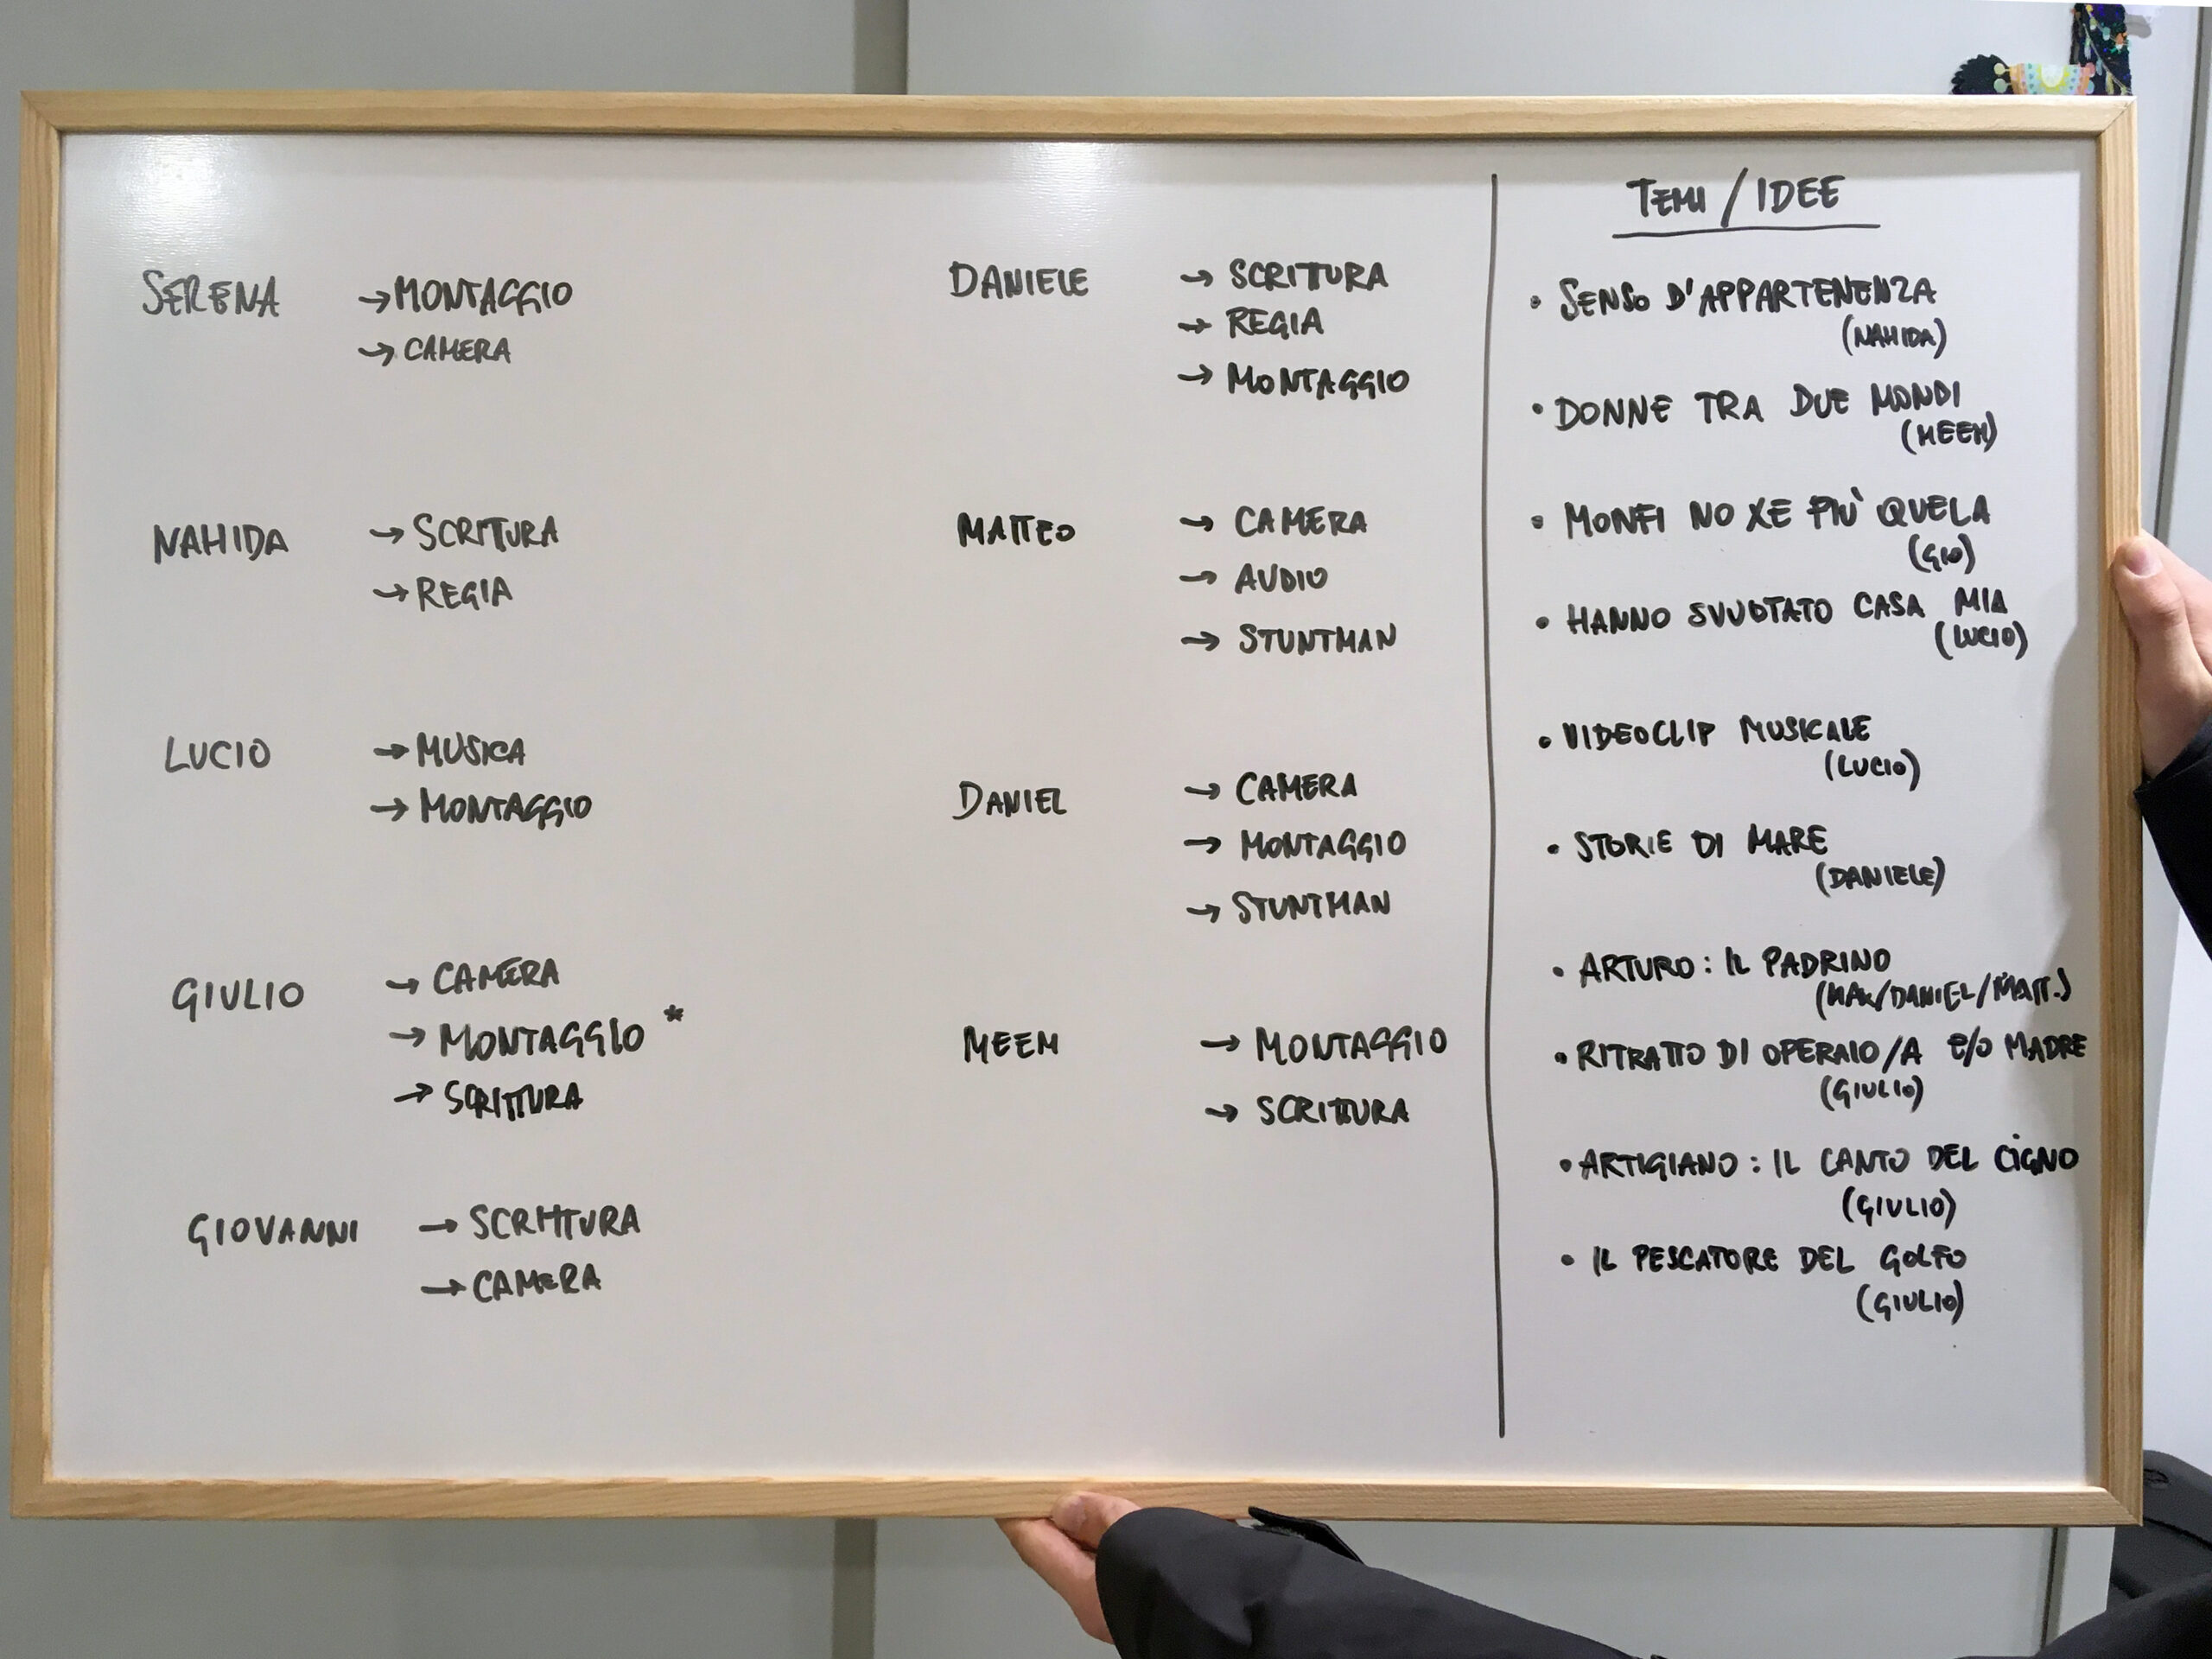 SERENA → MONTAGGIO
→ CAMERA
NAHIDA → SCRITTURA
→ REGIA
LUCIO → MUSICA
→ MONTAGGIO
GIULIO → CAMERA
→ MONTAGGIO *
→ SCRITTURA
GIOVANNI → SCRITTURA
→ CAMERA
DANIELE → SCRITTURA
→ REGIA
→ MONTAGGIO
MATTEO → CAMERA
→ AUDIO
→ STUNTMAN
DANIEL → CAMERA
→ MONTAGGIO
→ STUNTMAN
MEEM → MONTAGGIO
→ SCRITTURA
TEMI / IDEE
• SENSO D'APPARTENENZA
(NAHIDA)
• DONNE TRA DUE MONDI
(MEEM)
• MONFI NO XE PIÙ QUELA
(GIO)
• HANNO SVUOTATO CASA MIA
(LUCIO)
• VIDEOCLIP MUSICALE
(LUCIO)
• STORIE DI MARE
(DANIELE)
• ARTURO: IL PADRINO
/DANIEL/MATT.)
• RITRATTO DI OPERAIO/A E/O MADRE
(GIULIO)
• ARTIGIANO: IL CANTO DEL CIGNO
(GIULIO)
• IL PESCATORE DEL GOLFO
(GIULIO)